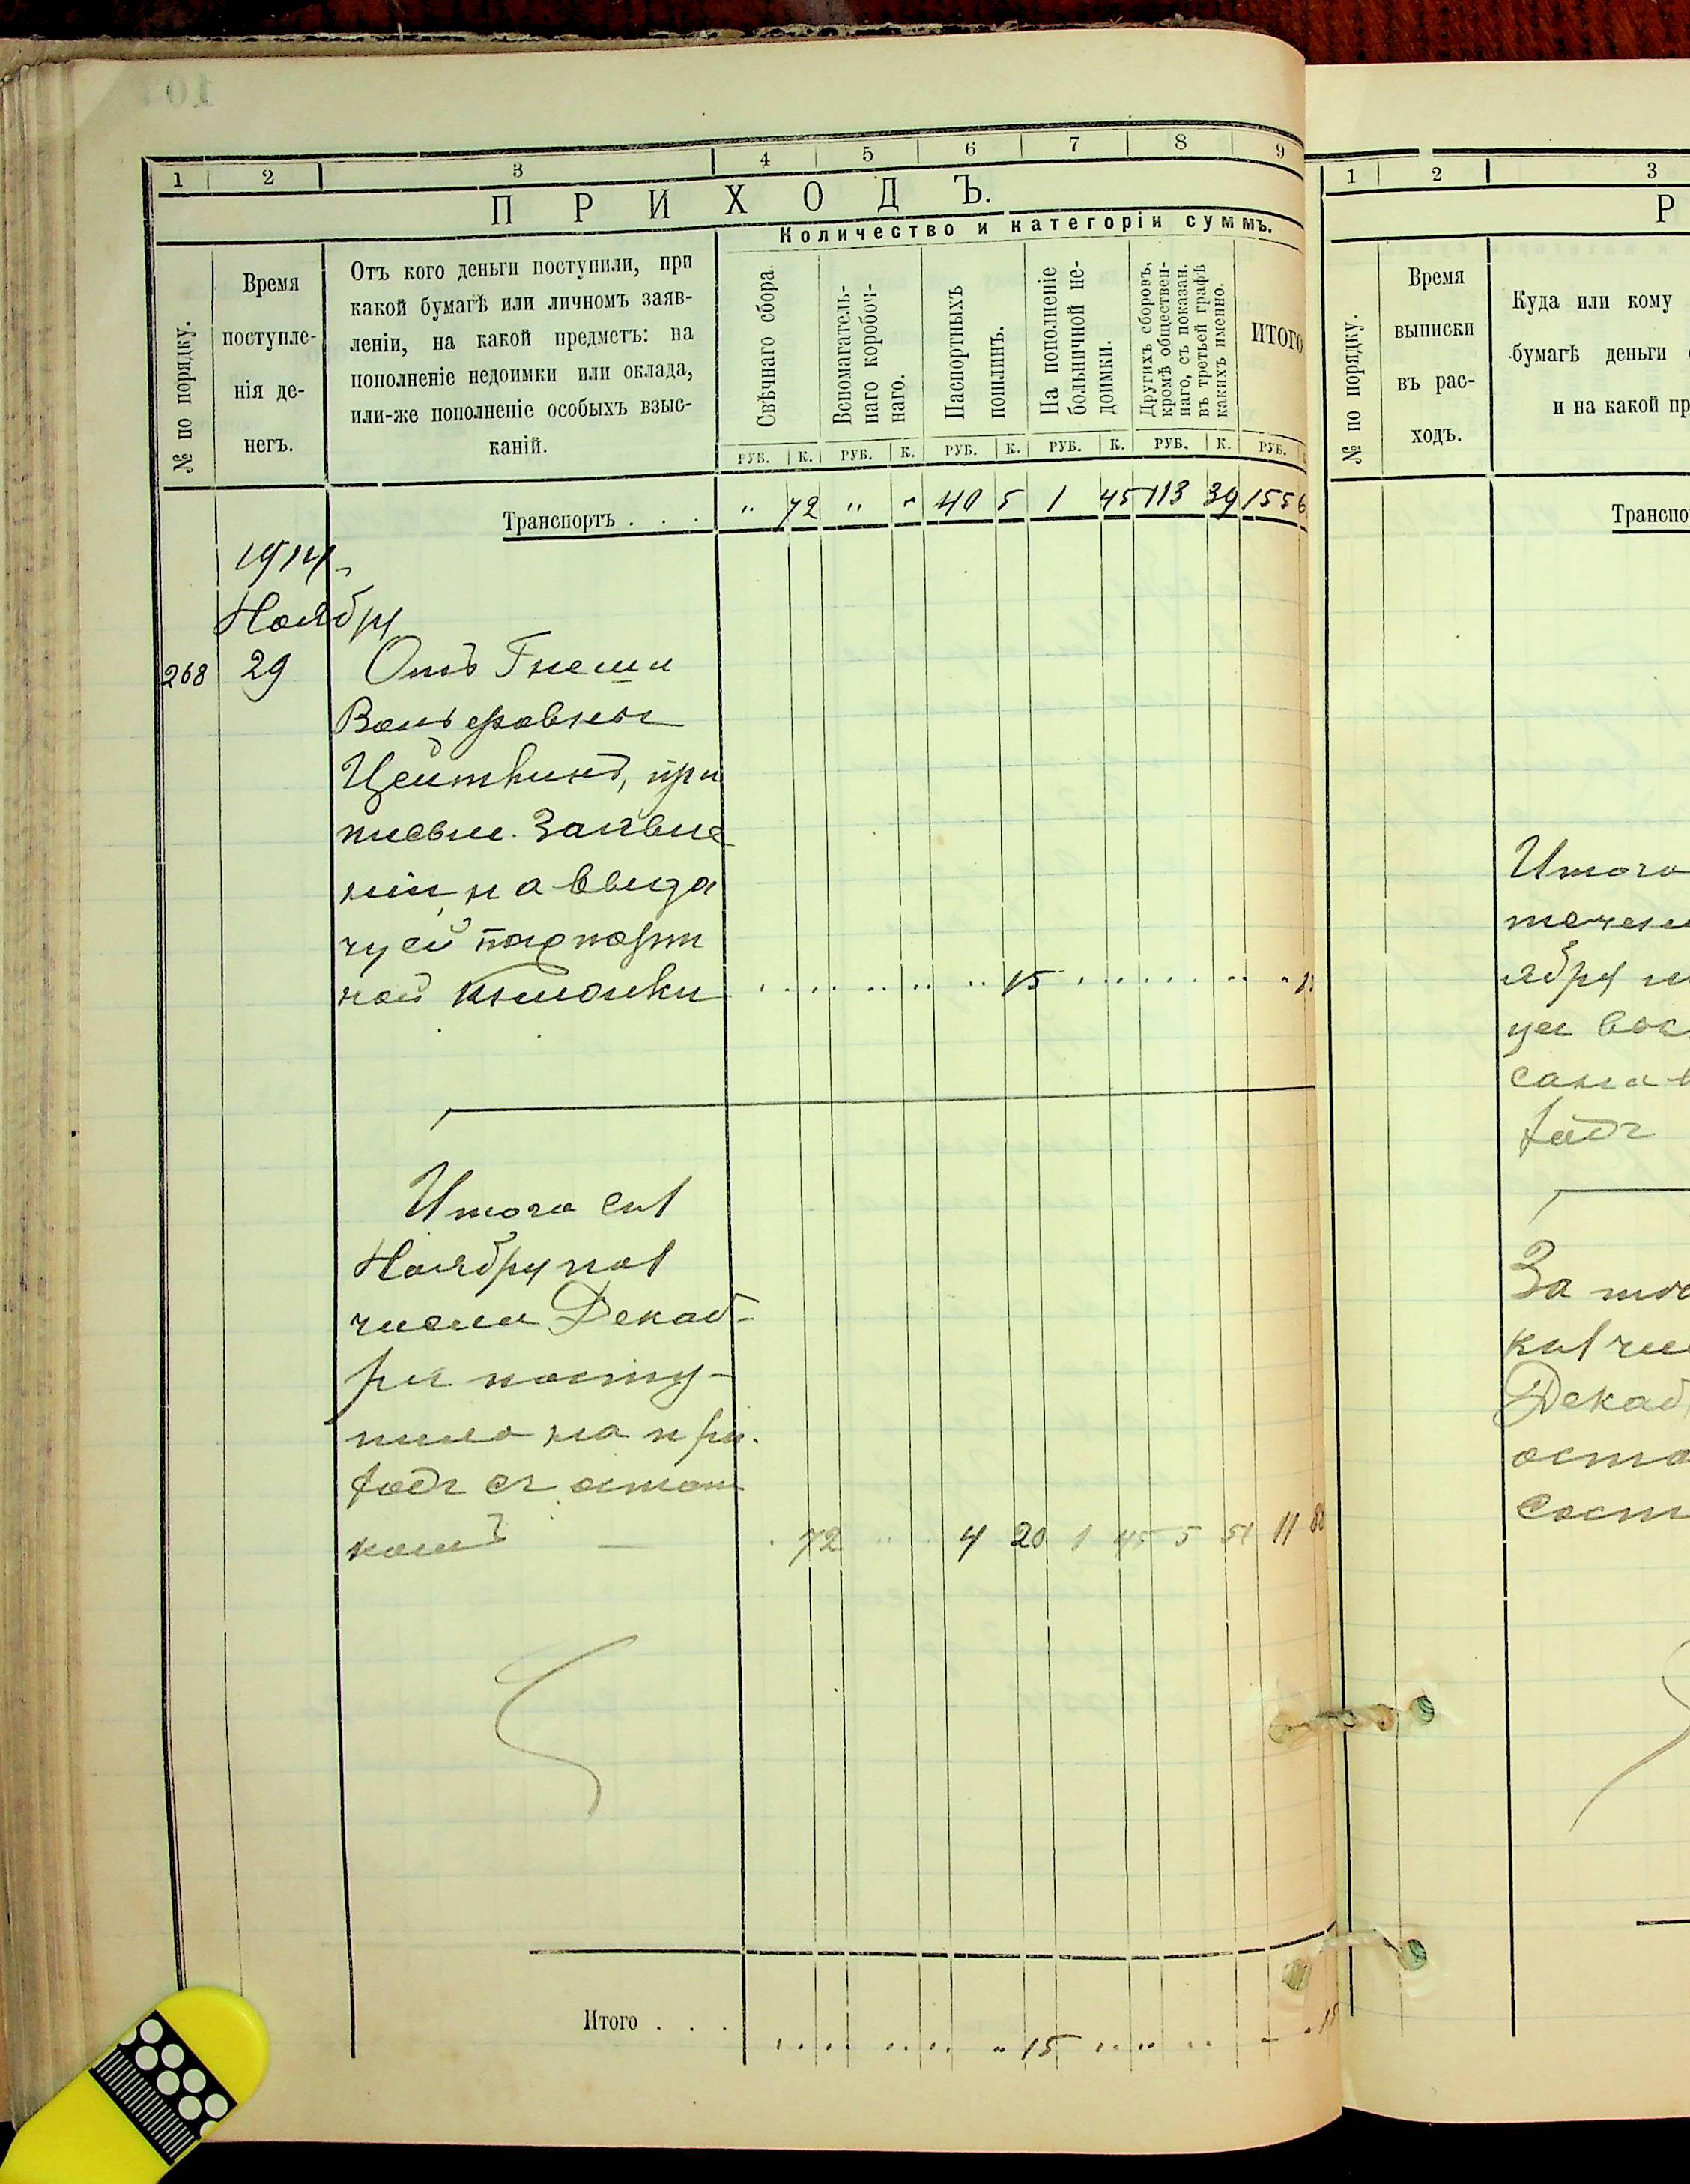 1 2 3 4 5 6 7 8 9
ПРИХОДЪ.
Количество и категоріи суммъ.
№ по порядку.
Время
поступле-
нія де-
негъ.
Отъ кого деньги поступили, при
какой бумагѣ или личномъ заяв-
леніи, на какой предметъ: на
пополненіе недоимки или оклада,
или-же пополненіе особыхъ взыс-
каній.
Свѣчнаго сбора.
Вспомагатель-
наго коробоч-
наго.
Паспортныхъ
пошлинъ.
На пополненіе
больничной не-
доимки.
Другихъ сборовъ,
кромѣ обществен-
наго, съ показан.
въ третьей графѣ
какихъ именно.
ИТОГО
РУБ. К. РУБ. К. РУБ. К. РУБ. К. РУБ. К. РУБ.
Транспортъ . . . " 72 " " 40 5 1 45 113 39 155 6
1914
Ноября
268 29 Отъ Гнеши
Вольфовны
Цейтлинъ, при
письм. заявле
ніи, на выда
чу ей паспорт
ной книжки 15
Итого съ 1
Ноября по 1
число Декаб-
ря посту-
пило на при-
ходъ съ остат
комъ 72 " 4 20 1 45 5 51 11 88
Итого . . . 15
1 2 3
Р
№ по порядку.
Время
выписки
въ рас-
ходъ.
Куда или кому
бумагѣ деньги
и на какой пр
Транспо
Итого
течен
ября
сана в
За
к 1 чи
Декаб
оста
сост